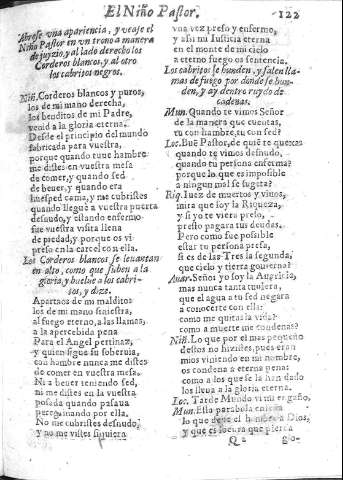 El Niño Pastor.
122
Abrese vna apariencia, y vease el
Niño Pastor en vn trono a manera
de juyzio, y al lado derecho los
Corderos blancos, y al otro
los cabritos negros.
Niñ. Corderos blancos y puros,
los de mi mano derecha,
los benditos de mi Padre,
venid a la gloria eterna.
Desde el principio del mundo
fabricada para vuestra,
porque quando tuue hambre
me distes en vuestra mesa
de comer, y quando sed
de beuer, y quando era
huesped cama, y me cubristes
quando lleguè a vuestra puerta
desnudo, y estando enfermo
fue vuestra visita llena
de piedad, porque os vi
preso en la carcel con ella.
Los Corderos blancos se leuantan
en alto, como que suben a la
gloria, y buelue a los cabri-
tos, y dize.
Apartaos de mi malditos
los de mi mano siniestra,
al fuego eterno, a las llamas,
a la apercebida pena
Para el Angel pertinaz,
y quien sigue su soberuia,
con hambre nunca me distes
de comer en vuestra mesa.
Ni a beuer teniendo sed,
ni me distes en la vuestra
posada quando passaua
peregrinando por ella.
No me cubristes desnudo,
y no me vistes siquiera
vna vez preso y enfermo,
y assi mi Iusticia eterna
en el monte de mi cielo
a eterno fuego os sentencia.
Los cabritos se hunden, y salen lla-
mas de fuego por donde se hun-
den, y ay dentro ruydo de
cadenas.
Mun. Quando te vimos Señor
de la manera que cuentas,
tu con hambre, tu con sed?
Loc. Bue Pastor, de què te quexas
quando te vimos desnudo,
quando tu persona enferma?
porque lo que es impossible
a ningun mal se sugeta?
Riq. Iuez de muertos y viuos,
mira que soy la Riqueza,
y si yo te viera preso,
presto pagara tus deudas.
Pero como fue possible
estar tu persona presa,
si es de las Tres la segunda,
que cielo y tierra gouierna?
Auar. Señor yo soy la Auaricia,
mas nunca tanta tuuiera,
que el agua a tu sed negara
a conocerte con ella:
como me quitas la vida?
como a muerte me condenas?
Niñ. Lo que por el mas pequeño
destos no hizistes, pues eran
mios viniendo en mi nombre,
os condena a eterna pena:
como a los que se la han dado
los lleua a la gloria eterna.
Loc. Tarde Mundo vi mi engaño,
Mun. Esta parabola enseña
lo que deue el hombre a Dios,
y que es locura que pierda
Q 2
go-